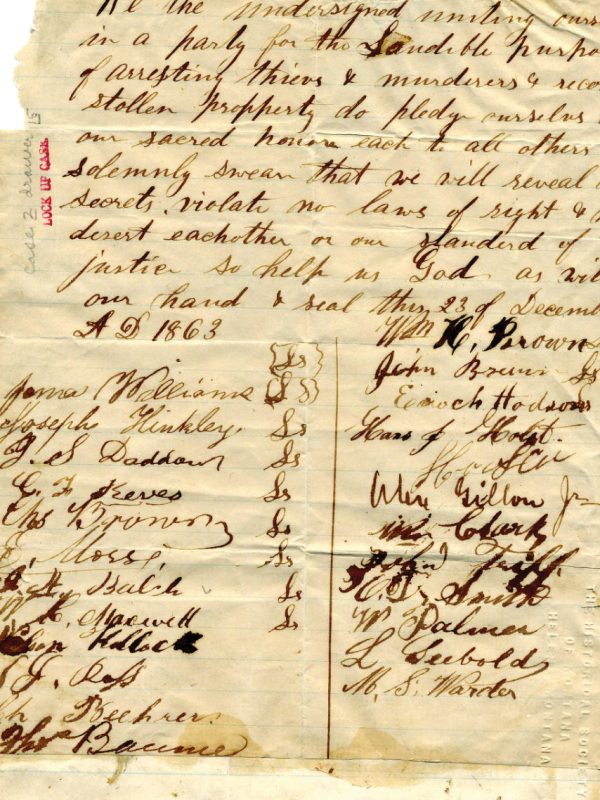 We the undersigned uniting ourse
in a party for the Laudible purpos
of arresting thievs & murderers & reco
stollen propperty do pledge ourselves
our sacred honor each to all others
solemnly swear that we will reveal
secrets, violate no laws of right &
desert eachother or our standerd of
justice so help us God as wit
our hand & seal this 23 of Decem
A D 1863
case 2 drawer 15
LOCK UP CASE
{Ls}
Williams {Ls}
Joseph Hinkley Ls
J. S Daddow Ls
C. F Keeves Ls
Chs Brown Ls
Morse Ls
Balch Ls
Maxwell Ls
Kollock
J. Ross
Beehrer
Thos Baume
Wm H. Brown
John Brown Ls
Enoch Hodson
Hans J Holst
Alex Gillon Jr
Wm Clark
John Triff
Smith
W Palmer
L Seebold
M. S. Warder
THE HISTORICAL SOCIETY
OF MONTANA
HELENA MONTANA